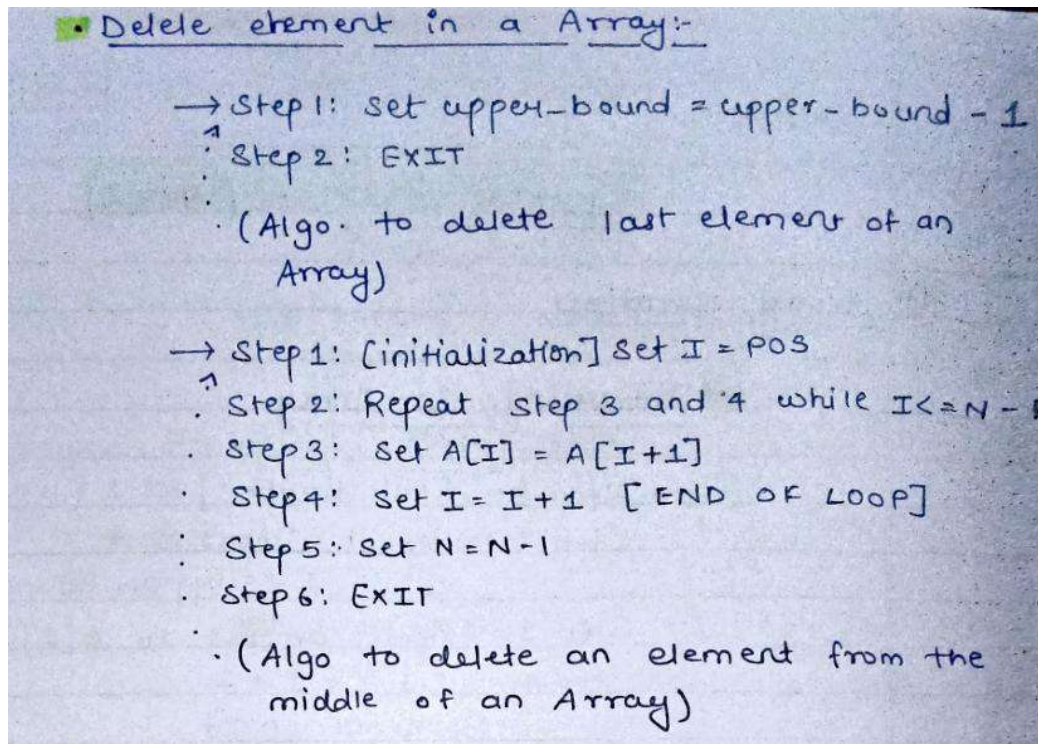 • Delele element in a Array:-
→ Step 1: Set upper-bound = upper-bound - 1
Step 2: EXIT
(Algo. to delete last element of an
Array)
→ Step 1: [initialization] Set I = POS
Step 2: Repeat step 3 and 4 while I<=N -
Step 3: Set A[I] = A[I+1]
Step 4: Set I = I + 1 [END OF LOOP]
Step 5: Set N = N-1
Step 6: EXIT
(Algo to delete an element from the
middle of an Array)